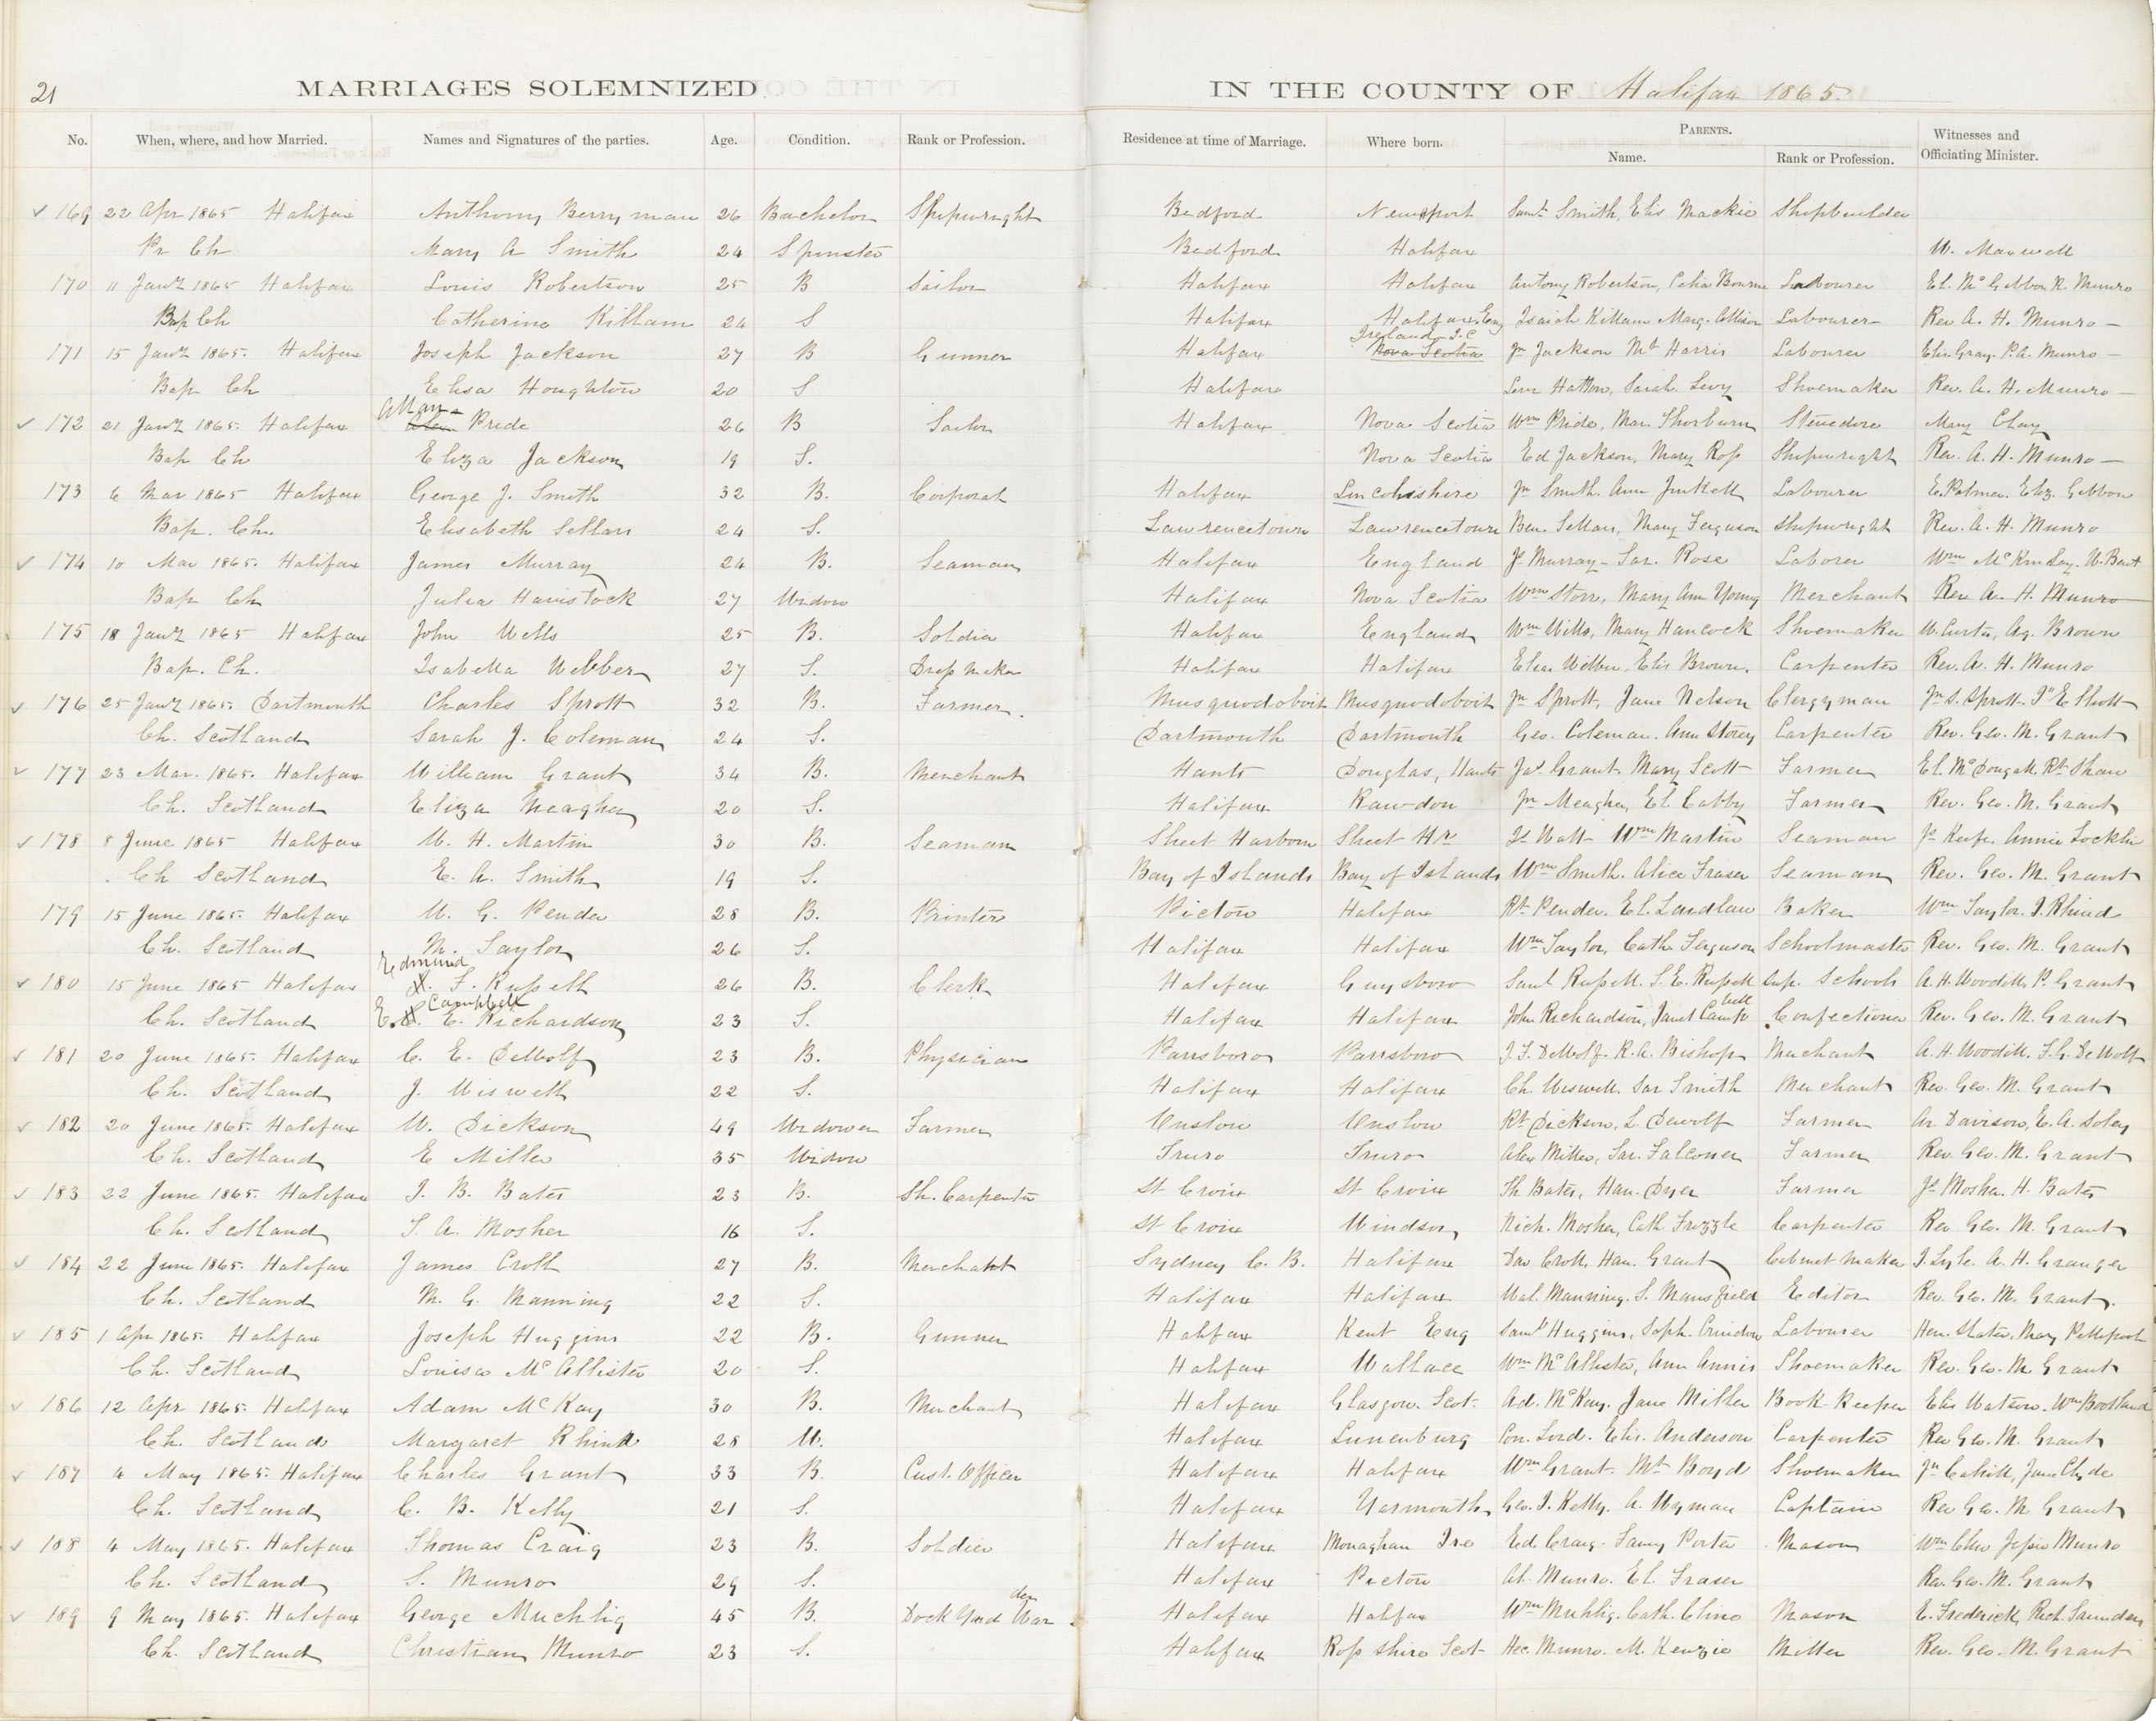 21 MARRIAGES SOLEMNIZED IN THE COUNTY OF Halifax 1865.
No. When, where, and how Married. Names and Signatures of the parties. Age. Condition. Rank or Profession. Residence at time of Marriage. Where born. PARENTS. Name. Rank or Profession. Witnesses and Officiating Minister.
169 22 Apr 1865 Halifax Anthony Berryman 26 Bachelor Shipwright Bedford Newport Saml Smith, Elis Mackie Shipbuilder
Pr Ch Mary A Smith 24 Spinster Bedford Halifax W. Maxwell
170 11 Jany 1865 Halifax Louis Robertson 25 B Sailor Halifax Halifax Antony Robertson, Celia Bourne Labourer El. McGibbon R. Munro
Bap Ch Catherine Killam 24 S Halifax Halifax Eng Isaiah Killam Marg. Allison Labourer Rev A. H. Munro —
171 15 Jany 1865. Halifax Joseph Jackson 27 B Gunner Halifax Ireland I.C Nova Scotia Jn Jackson Mt Harris Labourer Elis. Gray. P.A. Munro —
Bap Ch Elisa Houghton 20 S Halifax Levi Hatton, Sarah Levy Shoemaker Rev. A. H. Munro —
172 21 Jany 1865. Halifax Allan Pride 26 B Sailor Halifax Nova Scotia Wm Pride, Mar. Thorburn Stevedore Mary Clay
Bap Ch Eliza Jackson 19 S. Nova Scotia Ed Jackson, Mary Ross Shipwright Rev. A. H. Munro —
173 6 Mar 1865 Halifax George J. Smith 32 B. Corporal Halifax Lincolnshire Jn Smith. Ann Junkett Labourer E. Palmer. Eliz. Gibbon
Bap. Ch. Elisabeth Sellars 24 S. Lawrencetown Lawrencetown Ben. Sellars, Mary Ferguson Shipwright Rev. A. H. Munro
174 10 Mar 1865. Halifax James Murray 24 B. Seaman Halifax England Js Murray - Sar. Rose Laborer Wm McKinlay. W. Bent
Bap Ch Julia Havistock 27 Widow Halifax Nova Scotia Wm Storr, Mary Ann Young Merchant Rev A. H. Munro
175 18 Jany 1865 Halifax John Wells 25 B. Soldier Halifax England Wm Wills, Mary Hancock Shoemaker W. Curtis, Ag. Brown
Bap. Ch. Isabella Webber 27 S. Dress Maker Halifax Halifax Elias Webber, Elis Brown. Carpenter Rev. A. H. Munro
176 25 Jany 1865. Dartmouth Charles Sprott 32 B. Farmer. Musquodoboit Musquodoboit Jn Sprott, Jane Nelson Clergyman Jn S. Sprott. Jn Elliott
Ch. Scotland Sarah J. Coleman 24 S. Dartmouth Dartmouth Geo. Coleman. Ann Storey Carpenter Rev. Geo. M. Grant
177 23 Mar. 1865. Halifax William Grant 34 B. Merchant Hants Douglas, Hants Jas Grant Mary Scott Farmer El. McDougall Rt Shaw
Ch. Scotland Eliza Meagher 20 S. Halifax Rawdon Jn Meagher, El. Cabby Farmer Rev. Geo. M. Grant
178 8 June 1865 Halifax W. H. Martin 30 B. Seaman Sheet Harbour Sheet Hr Is Watt Wm Martin Seaman Js Keefe. Annie Locklin
Ch Scotland E. A. Smith 19 S. Bay of Islands Bay of Islands Wm Smith. Alice Fraser Seaman Rev. Geo. M. Grant
179 15 June 1865. Halifax W. G. Pender 28 B. Printer Pictou Halifax Rt Pender. El. Laidlaw Baker Wm Taylor. J. Rhind
Ch. Scotland M. Taylor 26 S. Halifax Halifax Wm Taylor, Cath. Ferguson Schoolmaster Rev. Geo. M. Grant
180 15 June 1865 Halifax Edmund F. Russell 26 B. Clerk Halifax Guysboro Saml Russell. S. E. Russell Sup. Schools A. H. Woodill, P. Grant
Ch. Scotland E. Campbell E. Richardson 23 S. Halifax Halifax John Richardson, Janet Campbell Confectioner Rev. Geo. M. Grant
181 20 June 1865. Halifax C. E. DeWolf 23 B. Physician Parrsboro Parrsboro J. F. DeWolf. R. A. Bishop Merchant A. H. Woodill. F. G. DeWolf
Ch. Scotland J. Wiswell 22 S. Halifax Halifax Ch. Wiswell. Sar Smith Merchant Rev. Geo. M. Grant
182 20 June 1865. Halifax W. Dickson 49 Widower Farmer Onslow Onslow Rt Dickson, L. Dewolf Farmer Ar. Davison, E. A. Soley
Ch. Scotland E Miller 35 Widow Truro Truro Alex Miller, Sar. Falconer Farmer Rev. Geo. M. Grant
183 22 June 1865. Halifax J. B. Bates 23 B. Sh. Carpenter St Croix St Croix Th Bates, Han. Dyer Farmer Js Mosher. H. Bates
Ch. Scotland S. A. Mosher 16 S. St Croix Windsor, Nich. Mosher, Cath Frizzle Carpenter Rev Geo. M. Grant
184 22 June 1865. Halifax James Croll 27 B. Merchant Sydney C. B. Halifax Dav Croll, Han. Grant Cabinet Maker J. Lyle. A. H. Granger
Ch. Scotland M. G. Manning 22 S. Halifax Halifax Wal. Manning. S. Mansfield Editor Rev. Geo. M. Grant.
185 1 Apr 1865. Halifax Joseph Huggins 22 B. Gunner Halifax Kent Eng Saml Huggins, Soph. Crundon Labourer Hen. Slater, Mary Pettipool
Ch. Scotland Louisa McAllister 20 S. Halifax Wallace Wm McAllister, Ann Annis Shoemaker Rev. Geo. M Grant
186 12 Apr 1865. Halifax Adam McKay 30 B. Merchant Halifax Glasgow. Scot. Ad. McKay. Jane Miller Book Keeper Elis Watson. Wm Bootland
Ch. Scotland Margaret Rhind 28 W. Halifax Lunenburg Con. Lord. Elis. Anderson Carpenter Rev Geo. M. Grant
187 4 May 1865. Halifax Charles Grant 33 B. Cust. Officer Halifax Halifax Wm Grant. Mt Boyd Shoemaker Jn Cahill, Jane Clyde
Ch. Scotland C. B. Kelly 21 S. Halifax Yarmouth Geo. J. Kelly. A. Wyman Captain Rev Geo. M Grant
188 4 May 1865. Halifax Thomas Craig 23 B. Soldier Halifax Monaghan Ire Ed. Craig. Fanny Porter Mason Wm Clew Jessie Munro
Ch. Scotland S. Munro 29 S. Halifax Pictou Al. Munro. El. Fraser Rev. Geo. M. Grant
189 9 May 1865. Halifax George Muehlig 45 B. Dock Yard Warden Halifax Halifax Wm Muhlig. Cath. Cline Mason E. Frederick, Rich. Saunders
Ch. Scotland Christian Munro 23 S. Halifax Ross shire Scot Hec. Munro. M. Kenzie Miller Rev. Geo. M. Grant